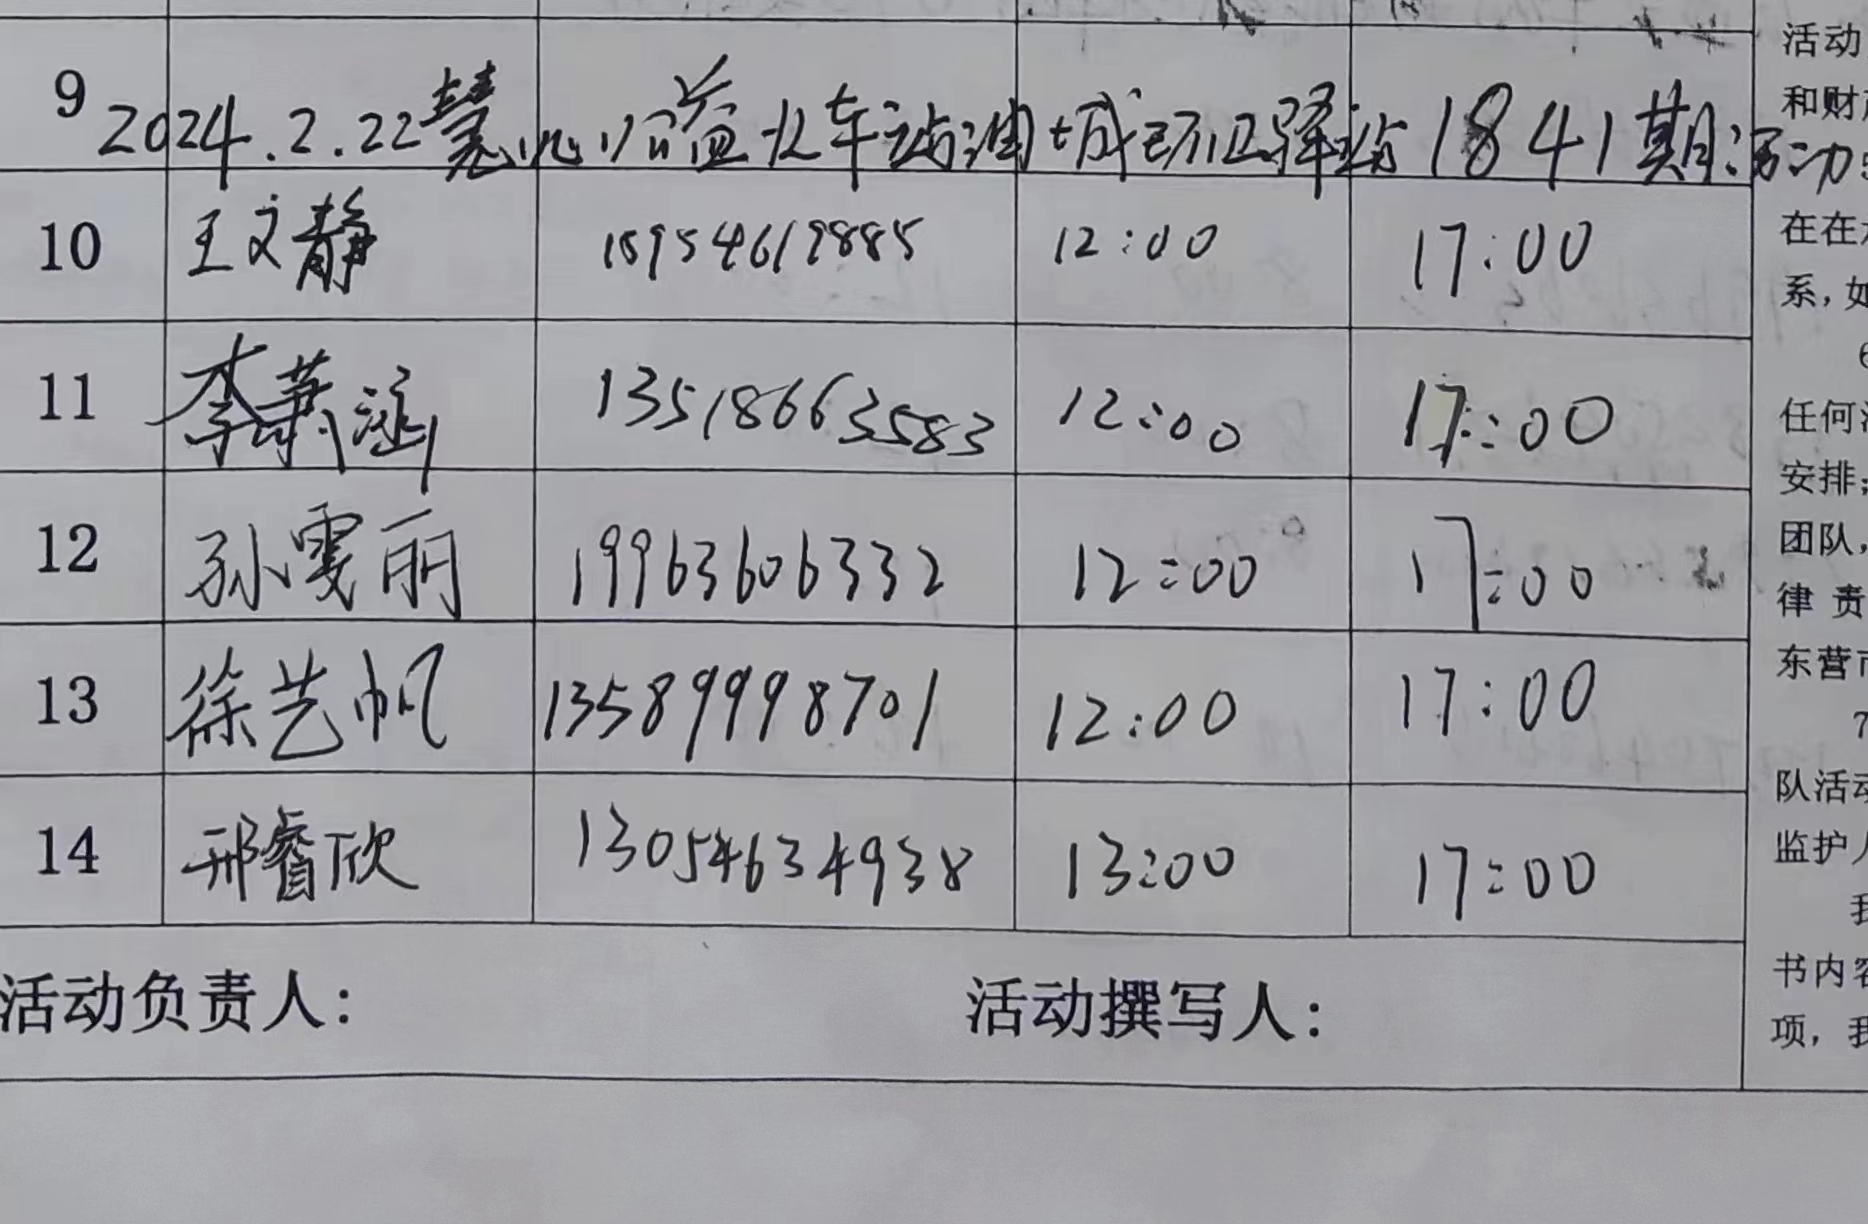 9 2024.2.22慧心公益北车站油城环卫驿站1841期活动
10 王文静 15954619885 12:00 17:00
11 李萧涵 13518663583 12:00 17:00
12 孙雯丽 19963606332 12:00 17:00
13 徐艺帆 13589998701 12:00 17:00
14 邢睿欣 13054634938 13:00 17:00
活动负责人： 活动撰写人：
活动
和财产
在在
系，如
6
任何
安排；
团队，
律 责
东营市
7
队活动
监护人
我
书内容
项，我